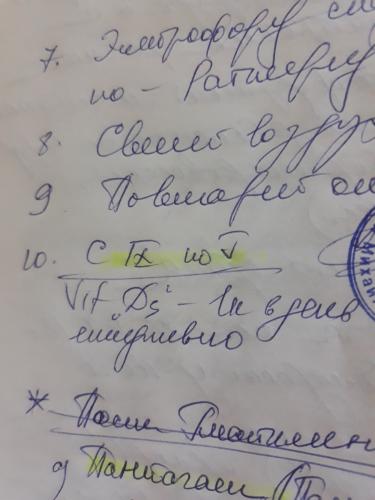 7. Электрофорез с
по - Ратнеру
8. Свежий воздух
9 Повторный ос
10. С IX по V
Vit D3 - 1к в день
ежедневно
* После
а) Пантогам
Михаи